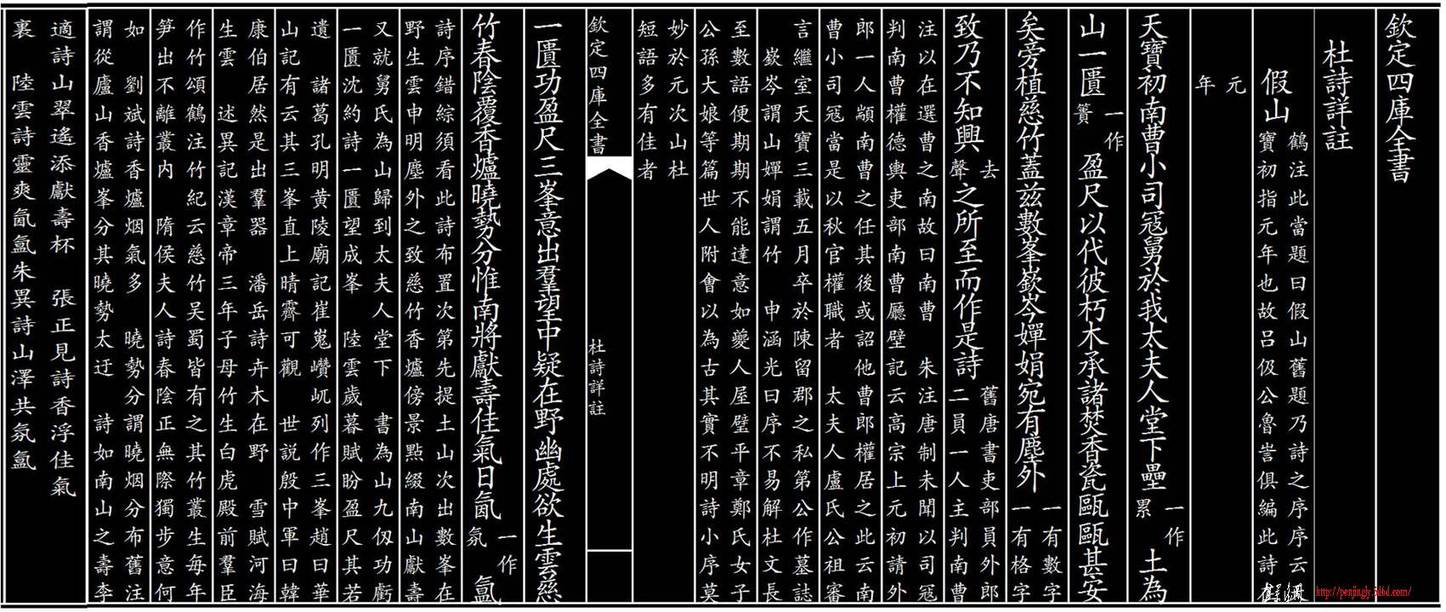 欽定四庫全書
杜詩詳註
假山
鶴注此當題曰假山舊題乃詩之序序云天
寶初指元年也故吕伋公魯訔俱編此詩
元
年
天寶初南曹小司寇舅於我太夫人堂下壘
一作
累
土為
山一匱
一作
簣
盈尺以代彼朽木承諸焚香瓷甌甌甚安
矣旁植慈竹蓋兹數峯嶔岑嬋娟宛有塵外
一有數字
一有格字
致乃不知興
去
聲
之所至而作是詩
舊唐書吏部員外郎
二員一人主判南曹
注以在選曹之南故曰南曹 朱注唐制未聞以司寇
判南曹權德輿吏部南曹廳壁記云高宗上元初請外
郎一人顓南曹之任其後或詔他曹郎權居之此云南
曹小司寇當是以秋官權職者 太夫人盧氏公祖審
言繼室天寶三載五月卒於陳留郡之私第公作墓誌
嶔岑謂山嬋娟謂竹 申涵光曰序不易解杜文長
至數語便期期不能達意如夔人屋壁平章鄭氏女子
公孫大娘等篇世人附會以為古其實不明詩小序莫
妙於元次山杜
短語多有佳者
欽定四庫全書
杜詩詳註
一匱功盈尺三峯意出羣望中疑在野幽處欲生雲慈
竹春陰覆香爐曉勢分惟南將獻壽佳氣日氤
一作
氛
氳
詩序錯綜須看此詩布置次第先提土山次出數峯在
野生雲申明塵外之致慈竹香爐傍景點綴南山獻壽
又就舅氏為山歸到太夫人堂下 書為山九仭功虧
一匱沈約詩一匱望成峯 陸雲歲暮賦盼盈尺其若
遺 諸葛孔明黄陵廟記崔嵬巑岏列作三峯趙曰華
山記有云其三峯直上晴霽可觀 世説殷中軍曰韓
康伯居然是出羣器 潘岳詩卉木在野 雪賦河海
生雲 述異記漢章帝三年子母竹生白虎殿前羣臣
作竹頌鶴注竹紀云慈竹吴蜀皆有之其竹叢生每年
笋出不離叢内 隋侯夫人詩春陰正無際獨步意何
如 劉斌詩香爐烟氣多 曉勢分謂曉烟分布舊注
謂從廬山香爐峯分其曉勢太迂 詩如南山之壽李
適詩山翠遙添獻壽杯 張正見詩香浮佳氣
裏 陸雲詩靈爽氤氳朱異詩山澤共氛氳
http://penjingly.5d6d.com/